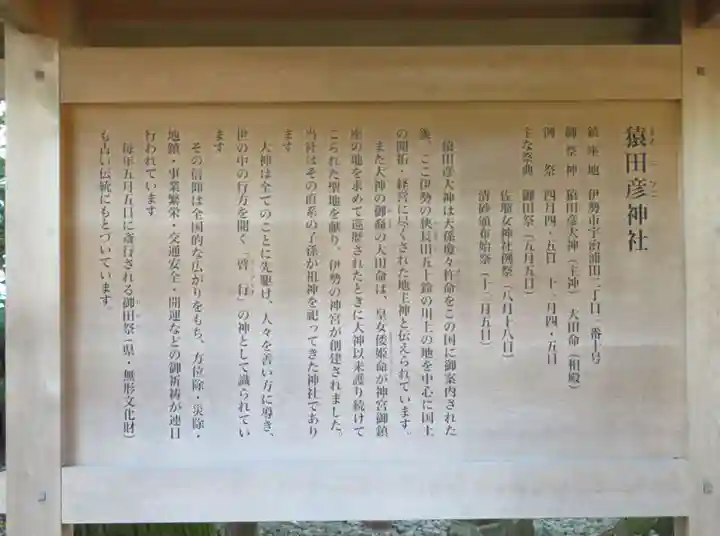 猿田彦神社
鎮座地 伊勢市宇治浦田二丁目一番十号
御祭神 猿田彦大神(主神) 大田命(相殿)
例祭 四月四・五日 十一月四・五日
主な祭典 御田祭(五月五日)
佐瑠女神社例祭(八月十八日)
清砂頒布始祭(十二月五日)
猿田彦大神は天孫瓊々杵命をこの国に御案内された
後、ここ伊勢の狭長田五十鈴の川上の地を中心に国土
の開拓・経営に尽くされた地主神と伝えられています。
また大神の御裔の大田命は、皇女倭姫命が神宮御鎮
座の地を求めて巡歴されたときに大神以来護り続けて
こられた聖地を献り、伊勢の神宮が創建されました。
当社はその直系の子孫が祖神を祀ってきた神社であり
ます
大神は全てのことに先駆け、人々を善い方に導き、
世の中の行方を開く「啓行」の神として識られてい
ます
その信仰は全国的な広がりをもち、方位除・災除・
地鎮・事業繁栄・交通安全・開運などの御祈祷が連日
行われています
毎年五月五日に斎行される御田祭(県・無形文化財)
も古い伝統にもとづいています。